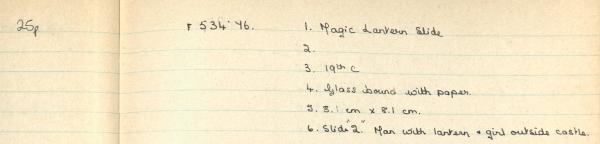 25p F 534'46. 1. Magic Lantern Slide
2.
3. 19th C
4. Glass bound with paper.
5. 8.1 cm x 8.1 cm.
6. Slide "2." Man with lantern + girl outside castle.